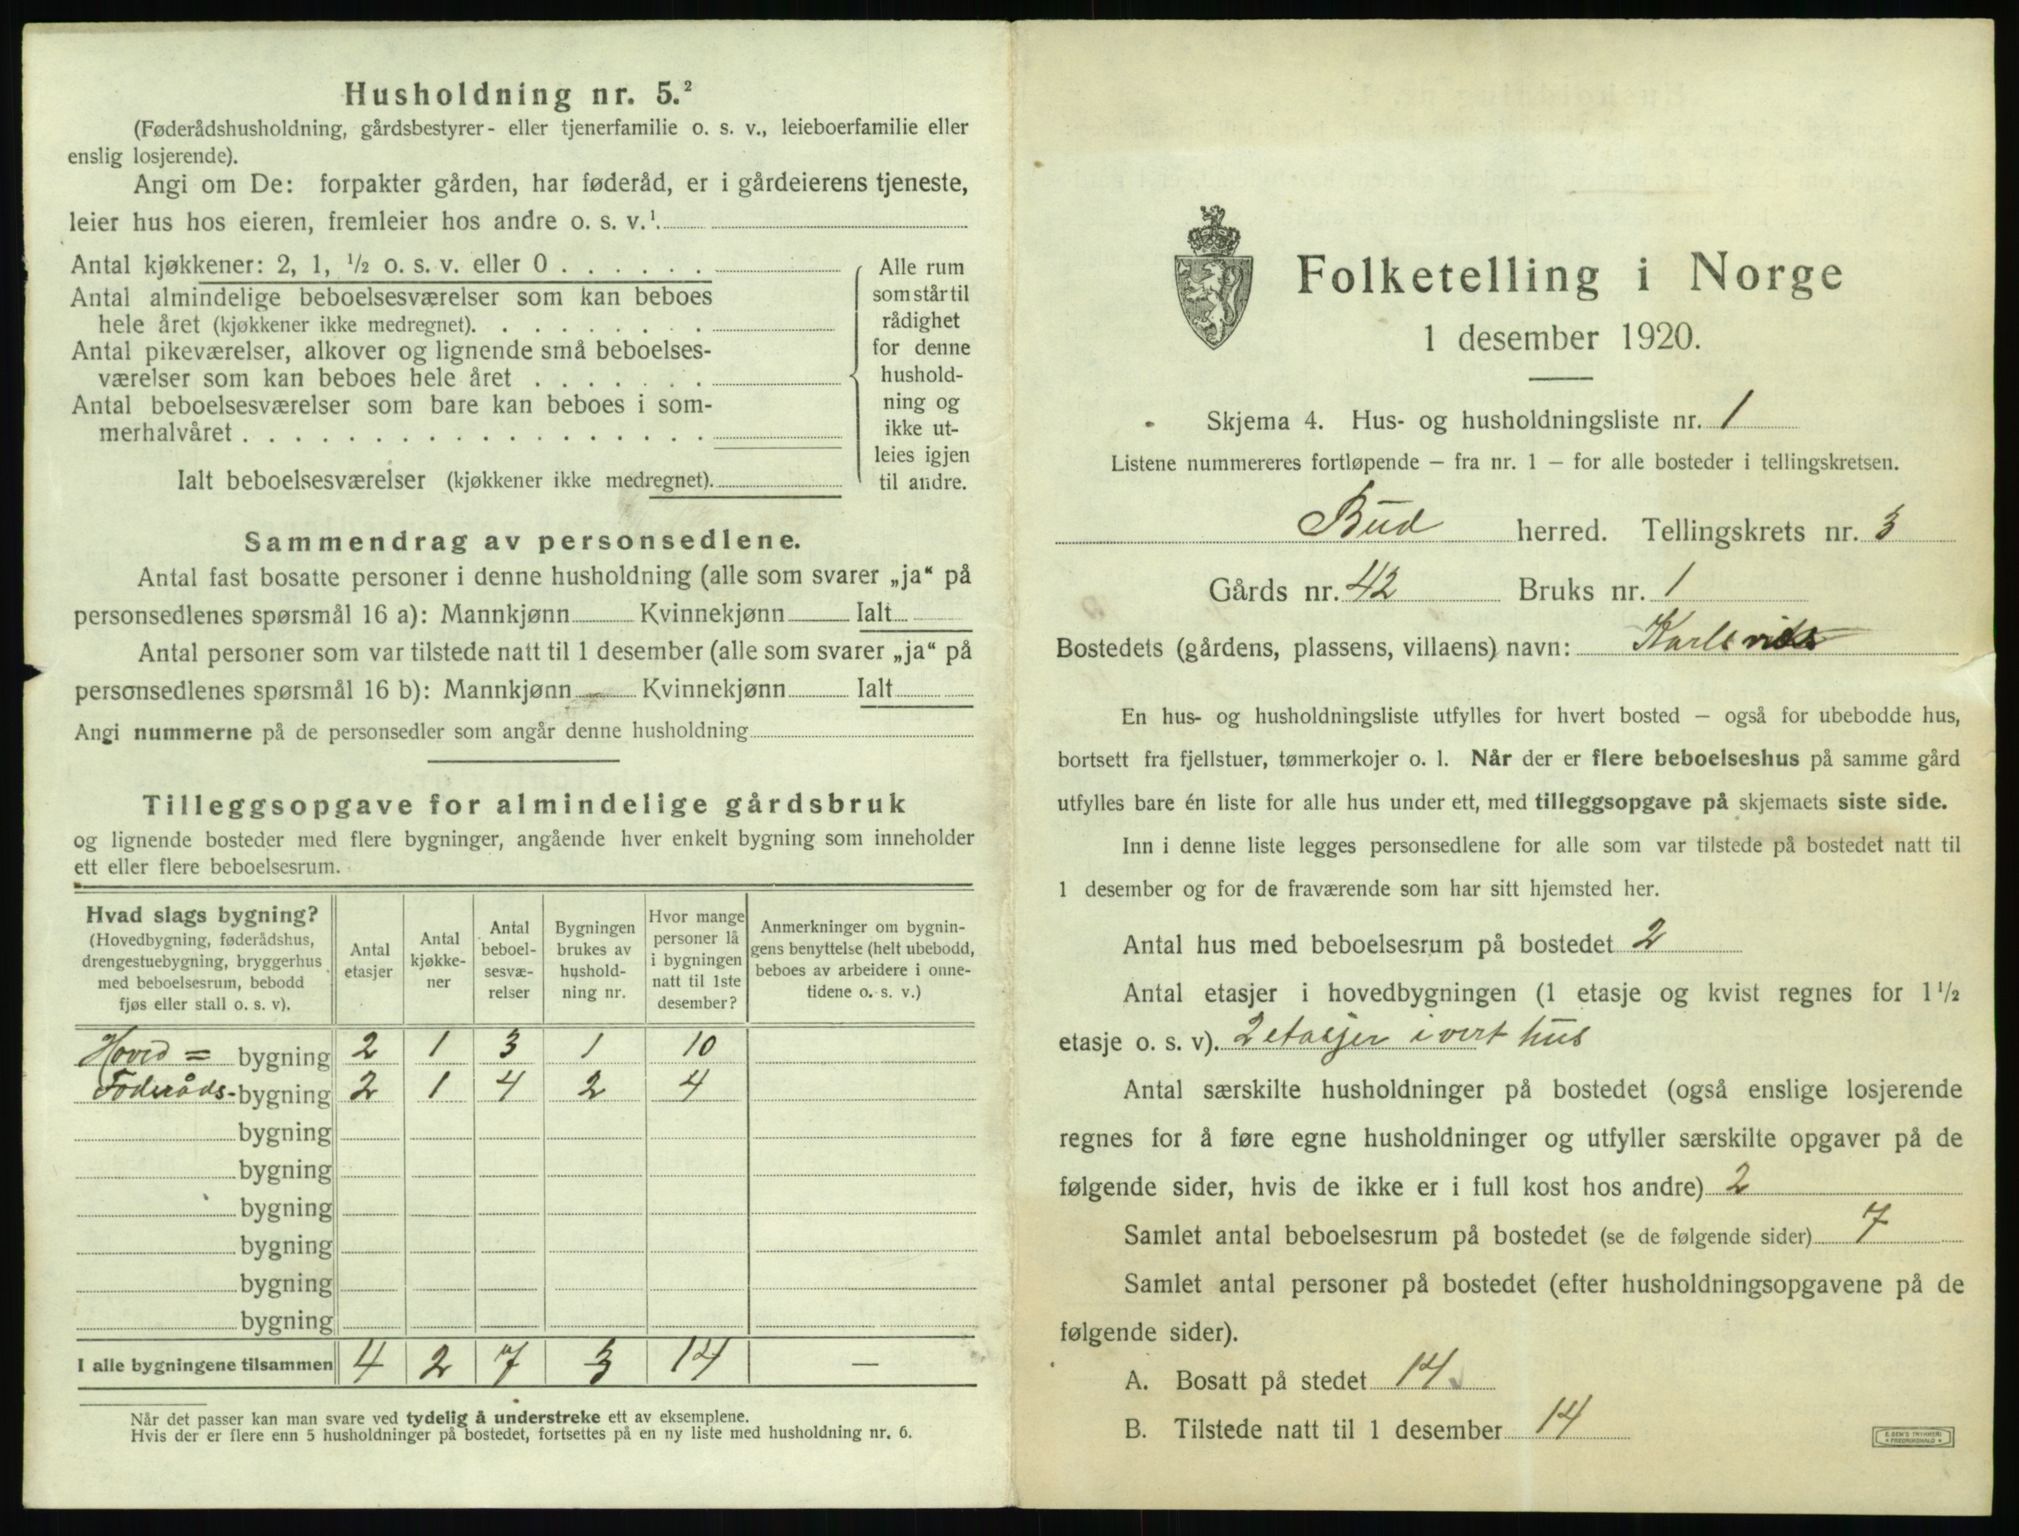 Husholdning nr. 5.²
(Føderådshusholdning, gårdsbestyrer- eller tjenerfamilie o. s. v., leieboerfamilie eller
enslig losjerende).
Angi om De: forpakter gården, har føderåd, er i gårdeierens tjeneste,
leier hus hos eieren, fremleier hos andre o. s. v.¹
Antal kjøkkener: 2, 1, ½ o. s. v. eller 0 . . . . . .
Antal almindelige beboelsesværelser som kan beboes
hele året (kjøkkener ikke medregnet). . . . . . . . .
Antal pikeværelser, alkover og lignende små beboelses-
værelser som kan beboes hele året . . . . . . .
Antal beboelsesværelser som bare kan beboes i som-
merhalvåret . . . . . . . . . . . . . . . . . .
Ialt beboelsesværelser (kjøkkener ikke medregnet).
Alle rum
som står til
rådighet
for denne
hushold-
ning og
ikke ut-
leies igjen
til andre.
Sammendrag av personsedlene.
Antal fast bosatte personer i denne husholdning (alle som svarer „ja“ på
personsedlenes spørsmål 16 a): Mannkjønn Kvinnekjønn Ialt
Antal personer som var tilstede natt til 1 desember (alle som svarer „ja“ på
personsedlenes spørsmål 16 b): Mannkjønn Kvinnekjønn Ialt
Angi nummerne på de personsedler som angår denne husholdning
Tilleggsopgave for almindelige gårdsbruk
og lignende bosteder med flere bygninger, angående hver enkelt bygning som inneholder
ett eller flere beboelsesrum.
Hvad slags bygning?
(Hovedbygning, føderådshus,
drengestuebygning, bryggerhus
med beboelsesrum, bebodd
fjøs eller stall o. s. v).
Antal
etasjer
Antal
kjøkke-
ner
Antal
beboel-
sesvæ-
relser
Bygningen
brukes av
hushold-
ning nr.
Hvor mange
personer lå
i bygningen
natt til 1ste
desember?
Anmerkninger om bygnin-
gens benyttelse (helt ubebodd,
beboes av arbeidere i onne-
tidene o. s. v.)
Hoved = bygning 2 1 3 1 10
Føderåds- bygning 2 1 4 2 4
bygning
bygning
bygning
bygning
bygning
bygning
I alle bygningene tilsammen 4 2 7 3 14 —
Når det passer kan man svare ved tydelig å understreke ett av eksemplene.
Hvis der er flere enn 5 husholdninger på bostedet, fortsettes på en ny liste med husholdning nr. 6.
Folketelling i Norge
1 desember 1920.
Skjema 4. Hus- og husholdningsliste nr. 1
Listene nummereres fortløpende – fra nr. 1 – for alle bosteder i tellingskretsen.
Bud herred. Tellingskrets nr. 3
Gårds nr. 42 Bruks nr. 1
Bostedets (gårdens, plassens, villaens) navn:
En hus- og husholdningsliste utfylles for hvert bosted – også for ubebodde hus,
bortsett fra fjellstuer, tømmerkojer o. l. Når der er flere beboelseshus på samme gård
utfylles bare én liste for alle hus under ett, med tilleggsopgave på skjemaets siste side.
Inn i denne liste legges personsedlene for alle som var tilstede på bostedet natt til
1 desember og for de fraværende som har sitt hjemsted her.
Antal hus med beboelsesrum på bostedet 2
Antal etasjer i hovedbygningen (1 etasje og kvist regnes for 1½
etasje o. s. v). 2 etasjer i vert hus
Antal særskilte husholdninger på bostedet (også enslige losjerende
regnes for å føre egne husholdninger og utfyller særskilte opgaver på de
følgende sider, hvis de ikke er i full kost hos andre) 2
Samlet antal beboelsesrum på bostedet (se de følgende sider) 7
Samlet antal personer på bostedet (efter husholdningsopgavene på de
følgende sider).
A. Bosatt på stedet 14
B. Tilstede natt til 1 desember 14